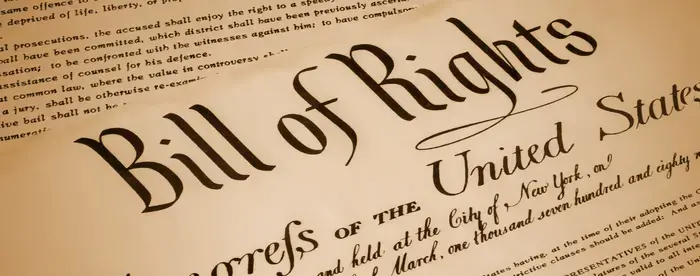 same offence to
deprived of life, liberty, or prop
al prosecutions, the accused shall enjoy the right to a speedy
shall have been committed, which district shall have been previously ascer
sation; to be confronted with the witnesses against him; to have compulsor
assistance of counsel for his defence.
at common law, where the value in controversy shall
a jury, shall be otherwise re-exami
ive bail shall not be
numerati
Bill of Rights
ongreſs OF THE United States
and held at the City of New York, on
March, one thousand seven hundred and eighty n
States having, at the time of their adopting the C
trictive clauses should be added: And as
REPRESENTATIVES of the UNI
of the several S
valid to all inte